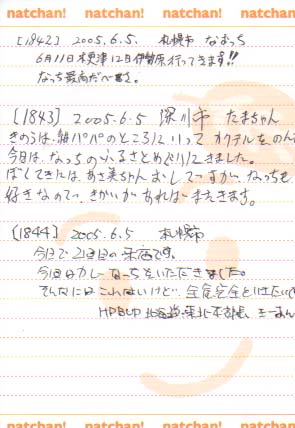 natchan! natchan! natchan! natchan!
[1842] 2005.6.5. 札幌市 なおっち
6月11日木更津12日伊勢原行ってきます!!
なっち最高だべさ。
[1843] 2005.6.5 深川市 たまちゃん
きのうは、紬パパのところにいって カクテルをのん
今日は、なっちのふるさとめぐりにきました。
ぼくてきには、あさ美ちゃん おしですが、なっちも
好きなので、きかいがあればまたきます。
[1844] 2005.6.5 札幌市
今日で2回目の来店です。
今回はカレーなっちをいただきました。
そんなにはこれないけど、全食完全といきたい
HPBUD 北海道・東北支部長
natchan! natchan! natchan! natchan!